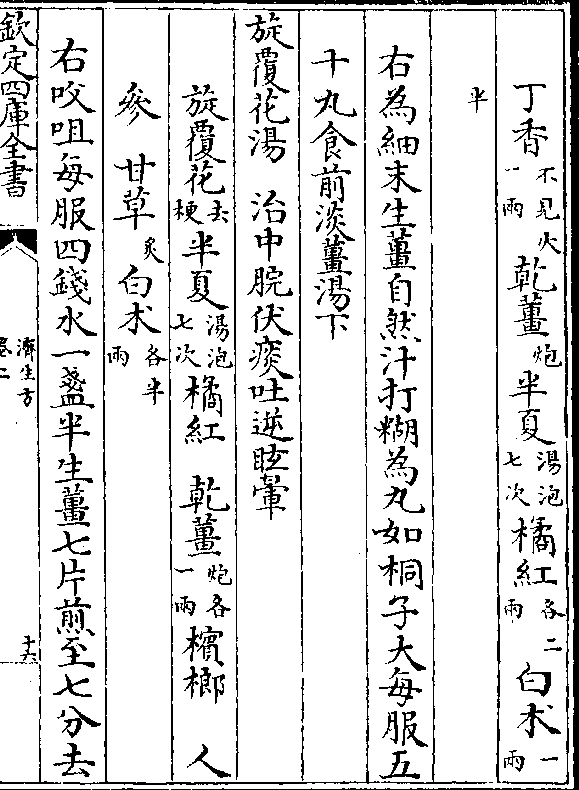 丁香不見火一兩乾薑炮半夏湯泡七次橘紅各二兩白朮一兩
半
右為細末生薑自然汁打糊為丸如桐子大每服五
十丸食前淡薑湯下
旋覆花湯 治中脘伏痰吐逆眩暈
旋覆花去梗半夏湯泡七次橘紅 乾薑炮各一兩檳榔 人
參 甘草炙白朮各半兩
右㕮咀每服四錢水一盞半生薑七片煎至七分去
欽定四庫全書
濟生方
卷二
十六